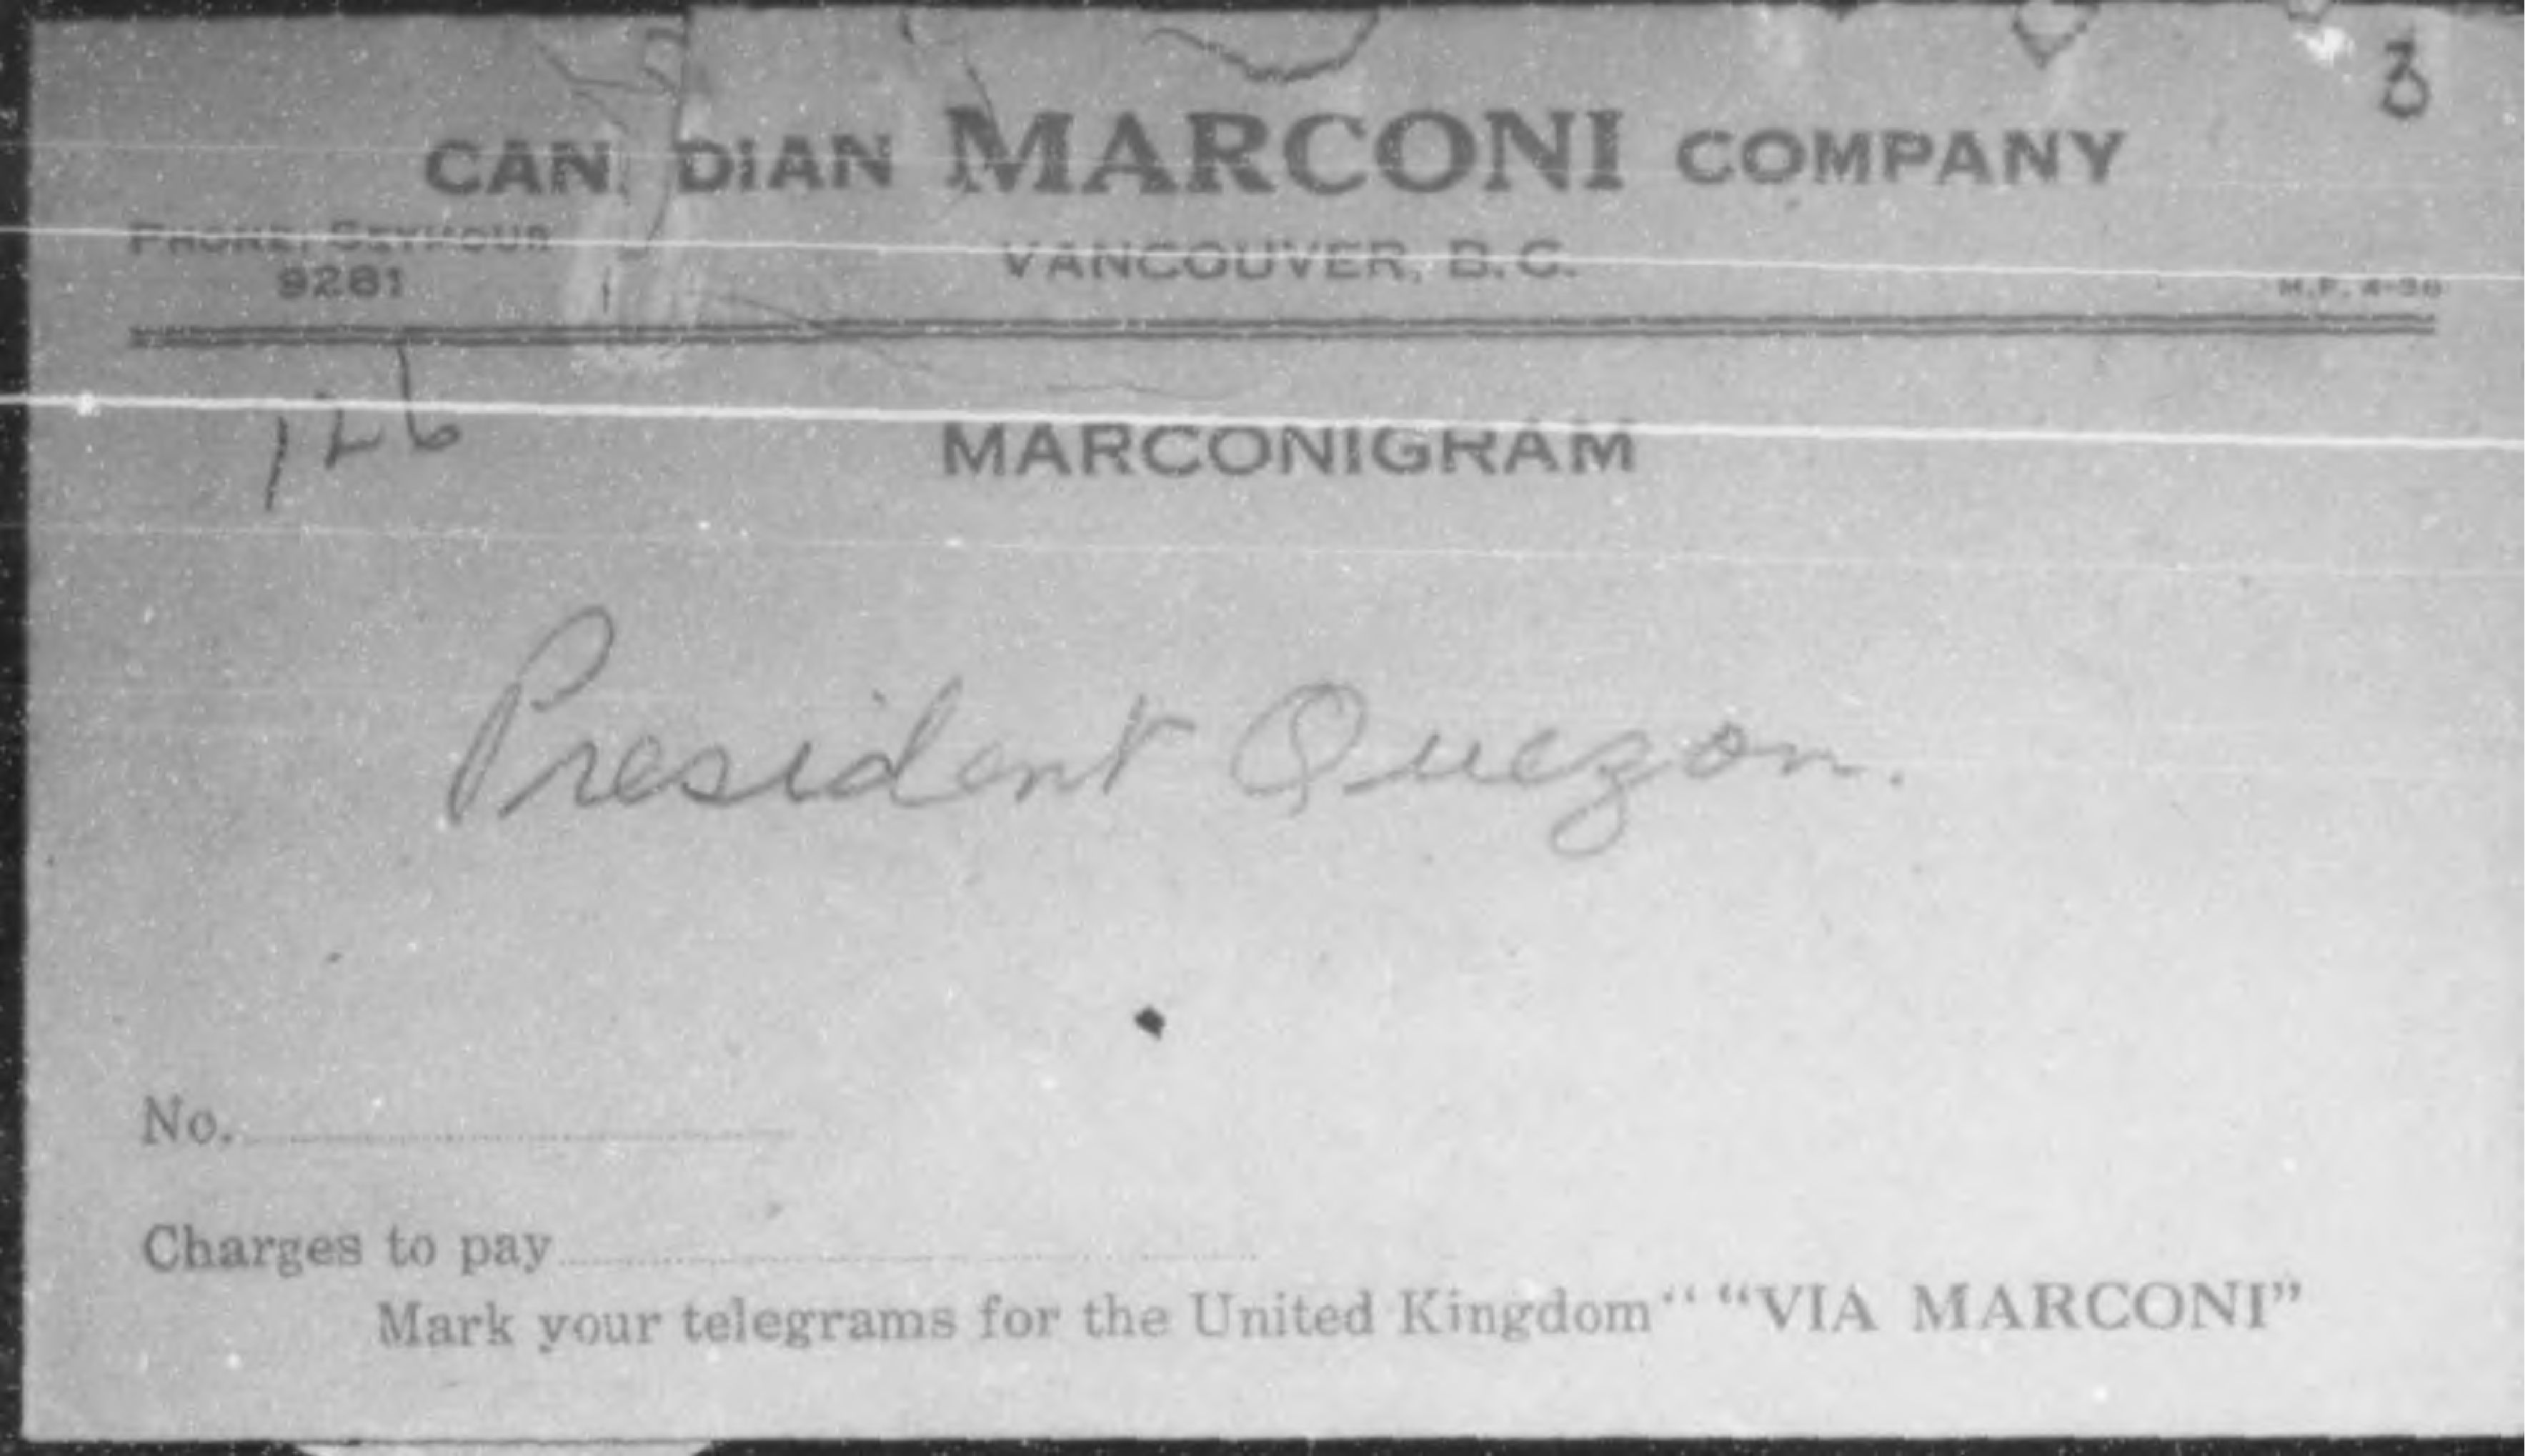 8
CAN DIAN MARCONI COMPANY
PHONE: SEYMOUR
9281
VANCOUVER, B.C.
M.P. 4-36
126
MARCONIGRAM
President Quezon.
No.
Charges to pay
Mark your telegrams for the United Kingdom“ “VIA MARCONI”